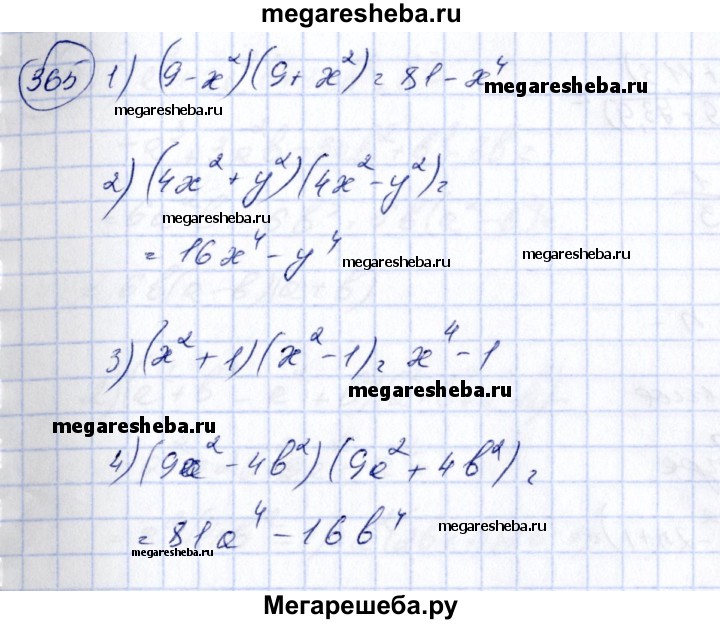 megaresheba.ru
365 1) (9-x²)(9+x²) = 81-x⁴
megaresheba.ru
megaresheba.ru
2) (4x²+y²)(4x²-y²) =
megaresheba.ru
= 16x⁴-y⁴
megaresheba.ru megaresheba.ru
3) (x²+1)(x²-1) = x⁴-1
megaresheba.ru
megaresheba.ru
4) (9a²-4b²)(9a²+4b²) =
= 81a⁴-16b⁴
megaresheba.ru megaresheba.ru
Мегарешеба.ру